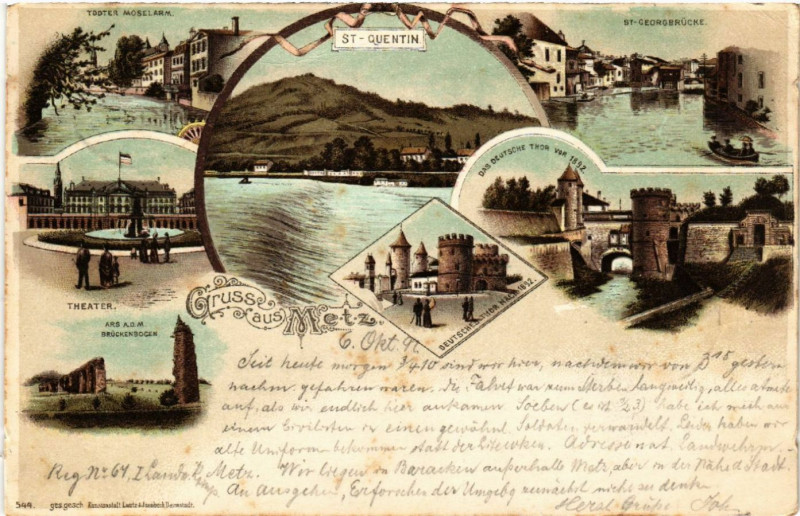 TODTER MOSELARM.
ST-QUENTIN
ST-GEORGBRÜCKE.
DAS DEUTSCHE THOR VOR 1892.
THEATER.
DEUTSCHE-THOR NACH 1892.
Gruss
aus Metz.
ARS A.D.M.
BRÜCKENBOGEN
6. Okt. 9
Seit heute morgen 10 sind wir hier, nachdem wir von gestern
nachm. gefahren waren. Die Fahrt war zum Sterben langweilig, alles atmete
auf, als wir endlich hier ankamen. Soeben (es ist ½3) habe ich mich aus
einem Civilisten in einen gewöhnl. Soldaten verwandelt. Leider haben wir
alte Uniform bekommen statt der Litewken. Adresse
Reg No 67, I Metz. Wir liegen in Baracken außerhalb Metz, aber in der Nähe d Stadt.
An Ausgehen, Erforschen der Umgebg zunächst nicht zu denken
Herzl Grüße Joh
544. ges. gesch. Kunstanstalt Lautz & Darmstadt.